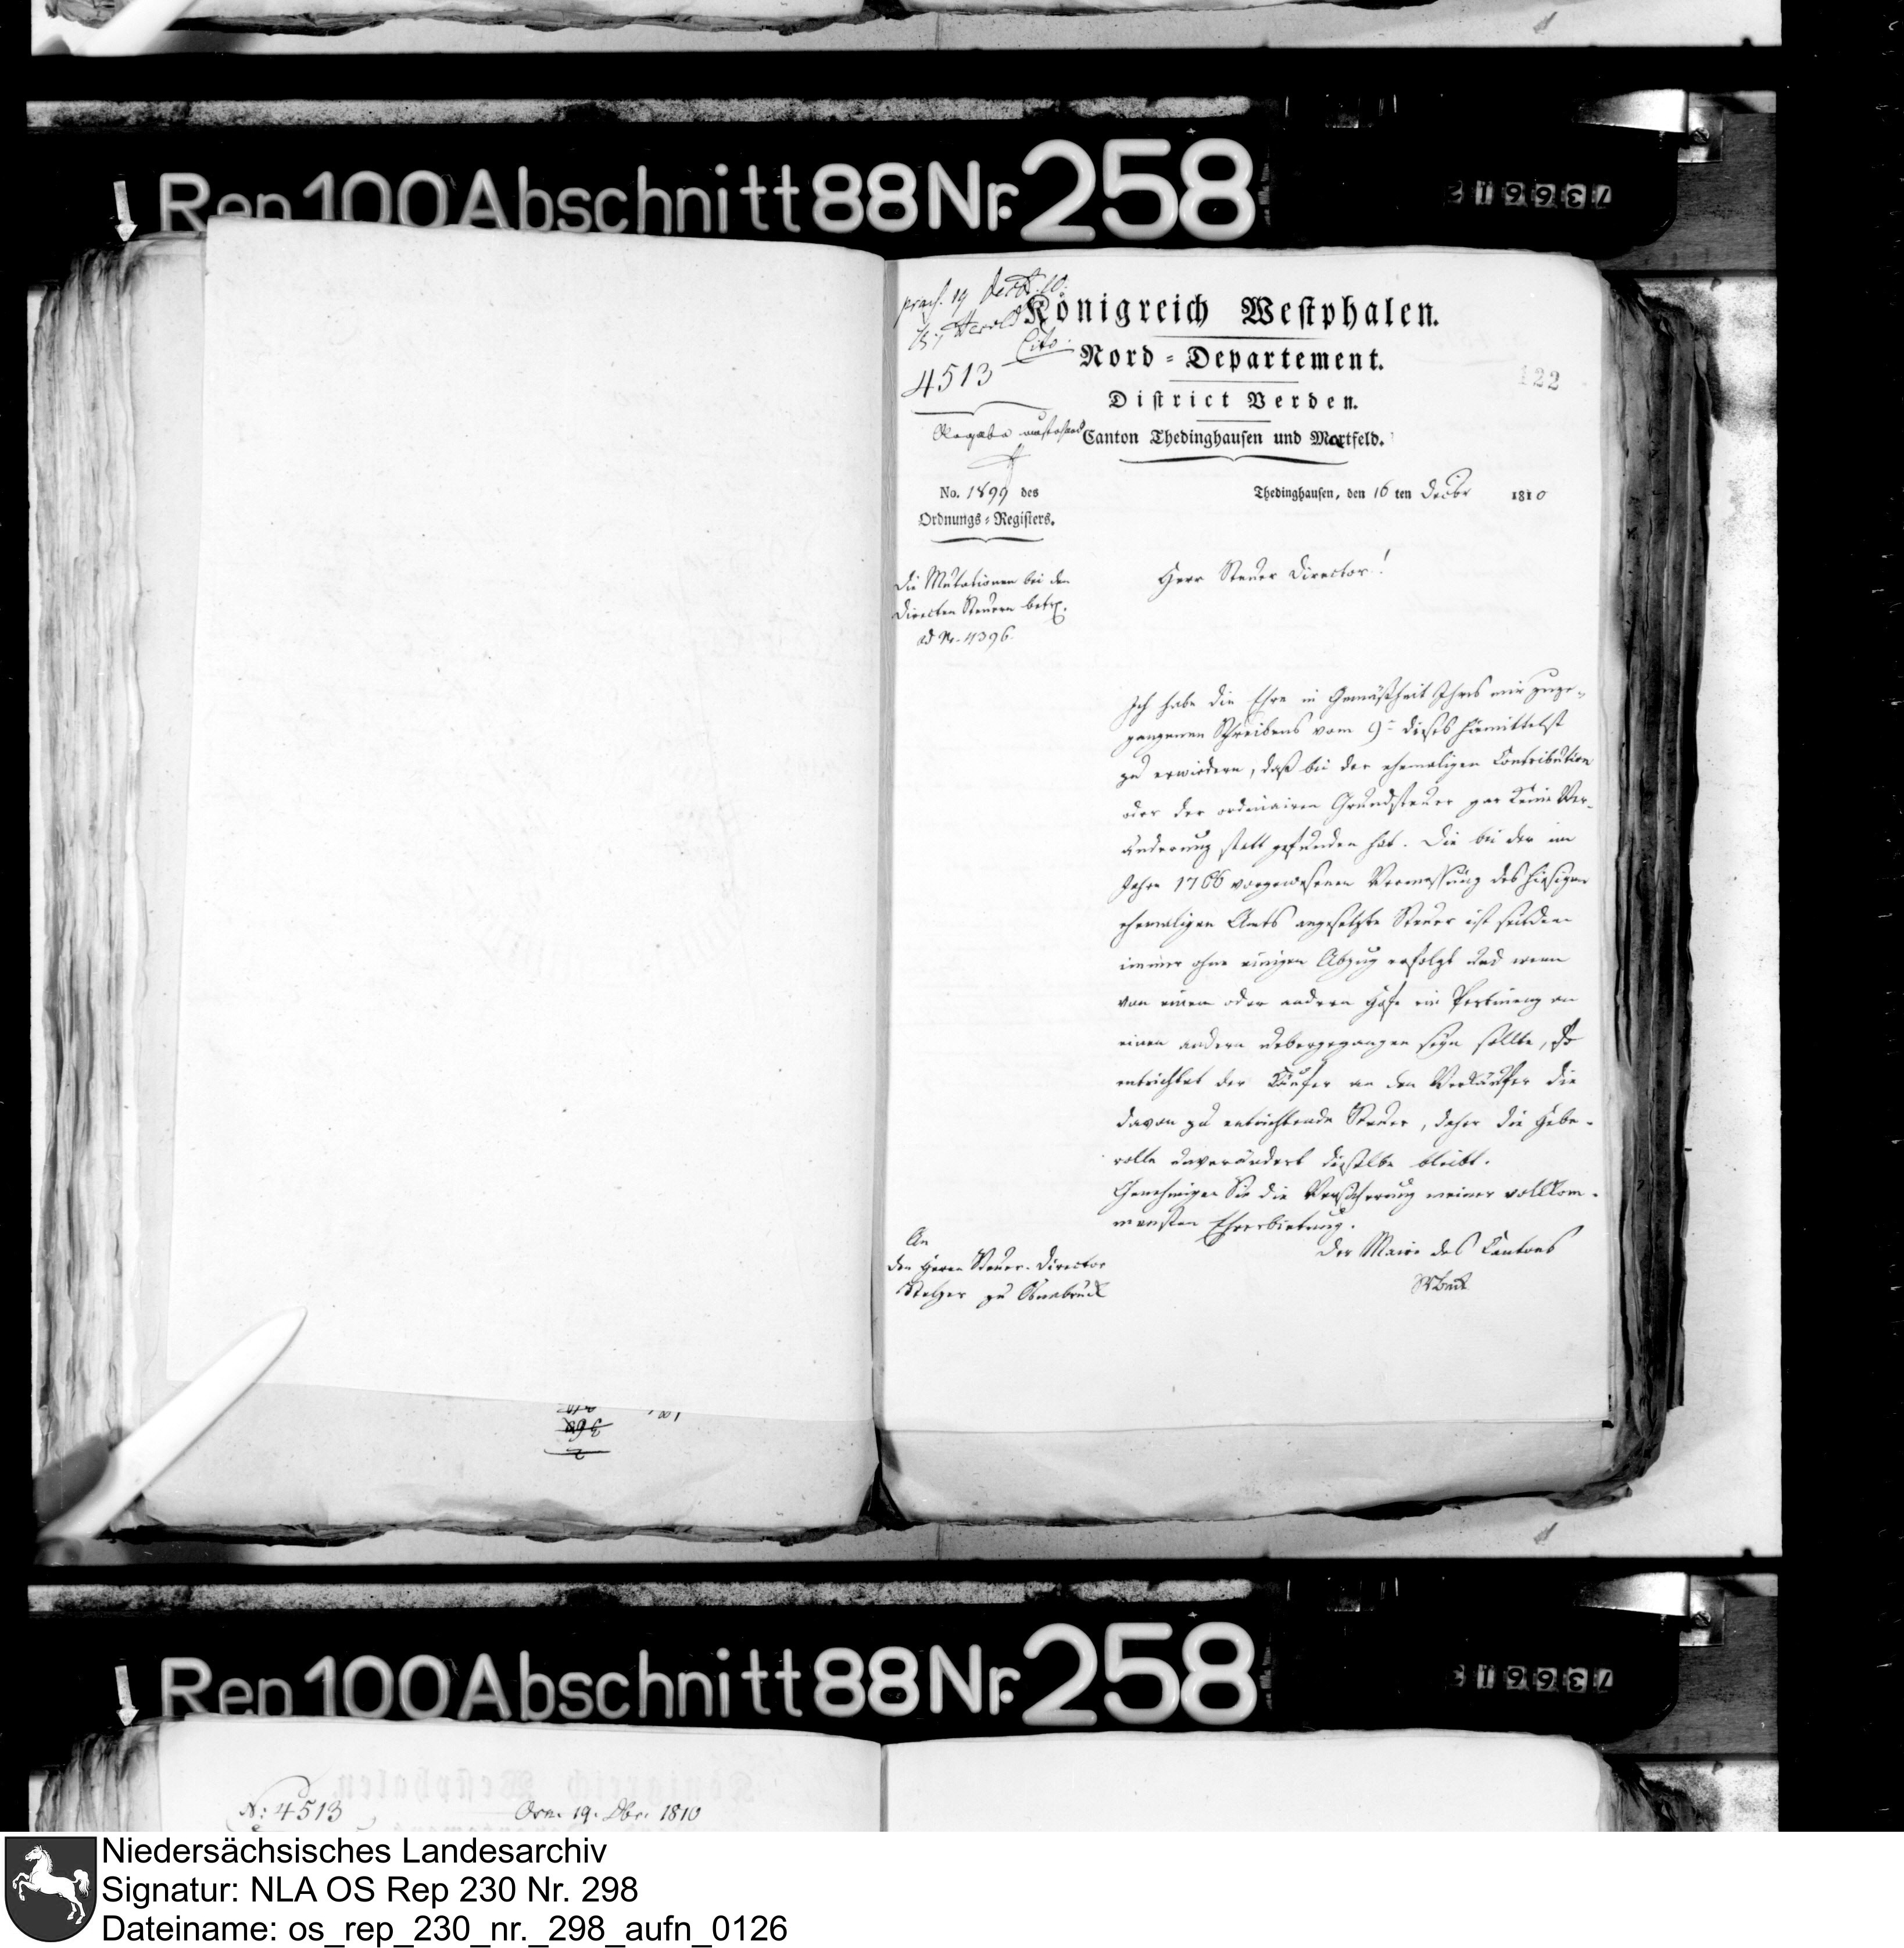 Rep 100 Abschnitt 88 Nr. 258
praes. 19 Decbr. 10.
Cito.
4513
Königreich Westphalen.
Nord-Departement.
District Verden.
Canton Thedinghausen und Martfeld.
122
No. 1899 des
Ordnungs-Registers.
Thedinghausen, den 16 ten Decbr 1810
Die Mutationen bei den
directen Steuern betr.
ad Nr. 4396.
Herr Steuer Director!
Ich habe die Ehre in Gemäßheit Ihres mir zuge-
gangenen Schreibens vom 9 dieses hiemittelst
zu erwiedern, daß bei der ehemaligen Contribution
oder der ordinairen Grundsteuer gar keine Ver-
änderung statt gefunden hat. Die bei der im
Jahre 1766 vorgewesenen Vermessung des hiesigen
ehemaligen Amts angesetzte Steuer ist seitdem
immer ohne einigen Abzug erfolgt und wenn
von einem oder andern Hofe ein Pertinenz an
einen andern uebergegangen seyn sollte, so
entrichtet der Käufer an den Verkäufer die
davon zu entrichtende Steuer, daher die Hebe-
rolle unverändert dieselbe bleibt.
Genehmigen Sie die Versicherung meiner vollkom-
mensten Ehrerbietung.
Der Maire des Cantons
An
den Herrn Steuer-Director
Stelzer zu Osnabrück
Rep 100 Abschnitt 88 Nr. 258
N: 4513
Osn. 19. Dbr. 1810
Niedersächsisches Landesarchiv
Signatur: NLA OS Rep 230 Nr. 298
Dateiname: os_rep_230_nr._298_aufn_0126